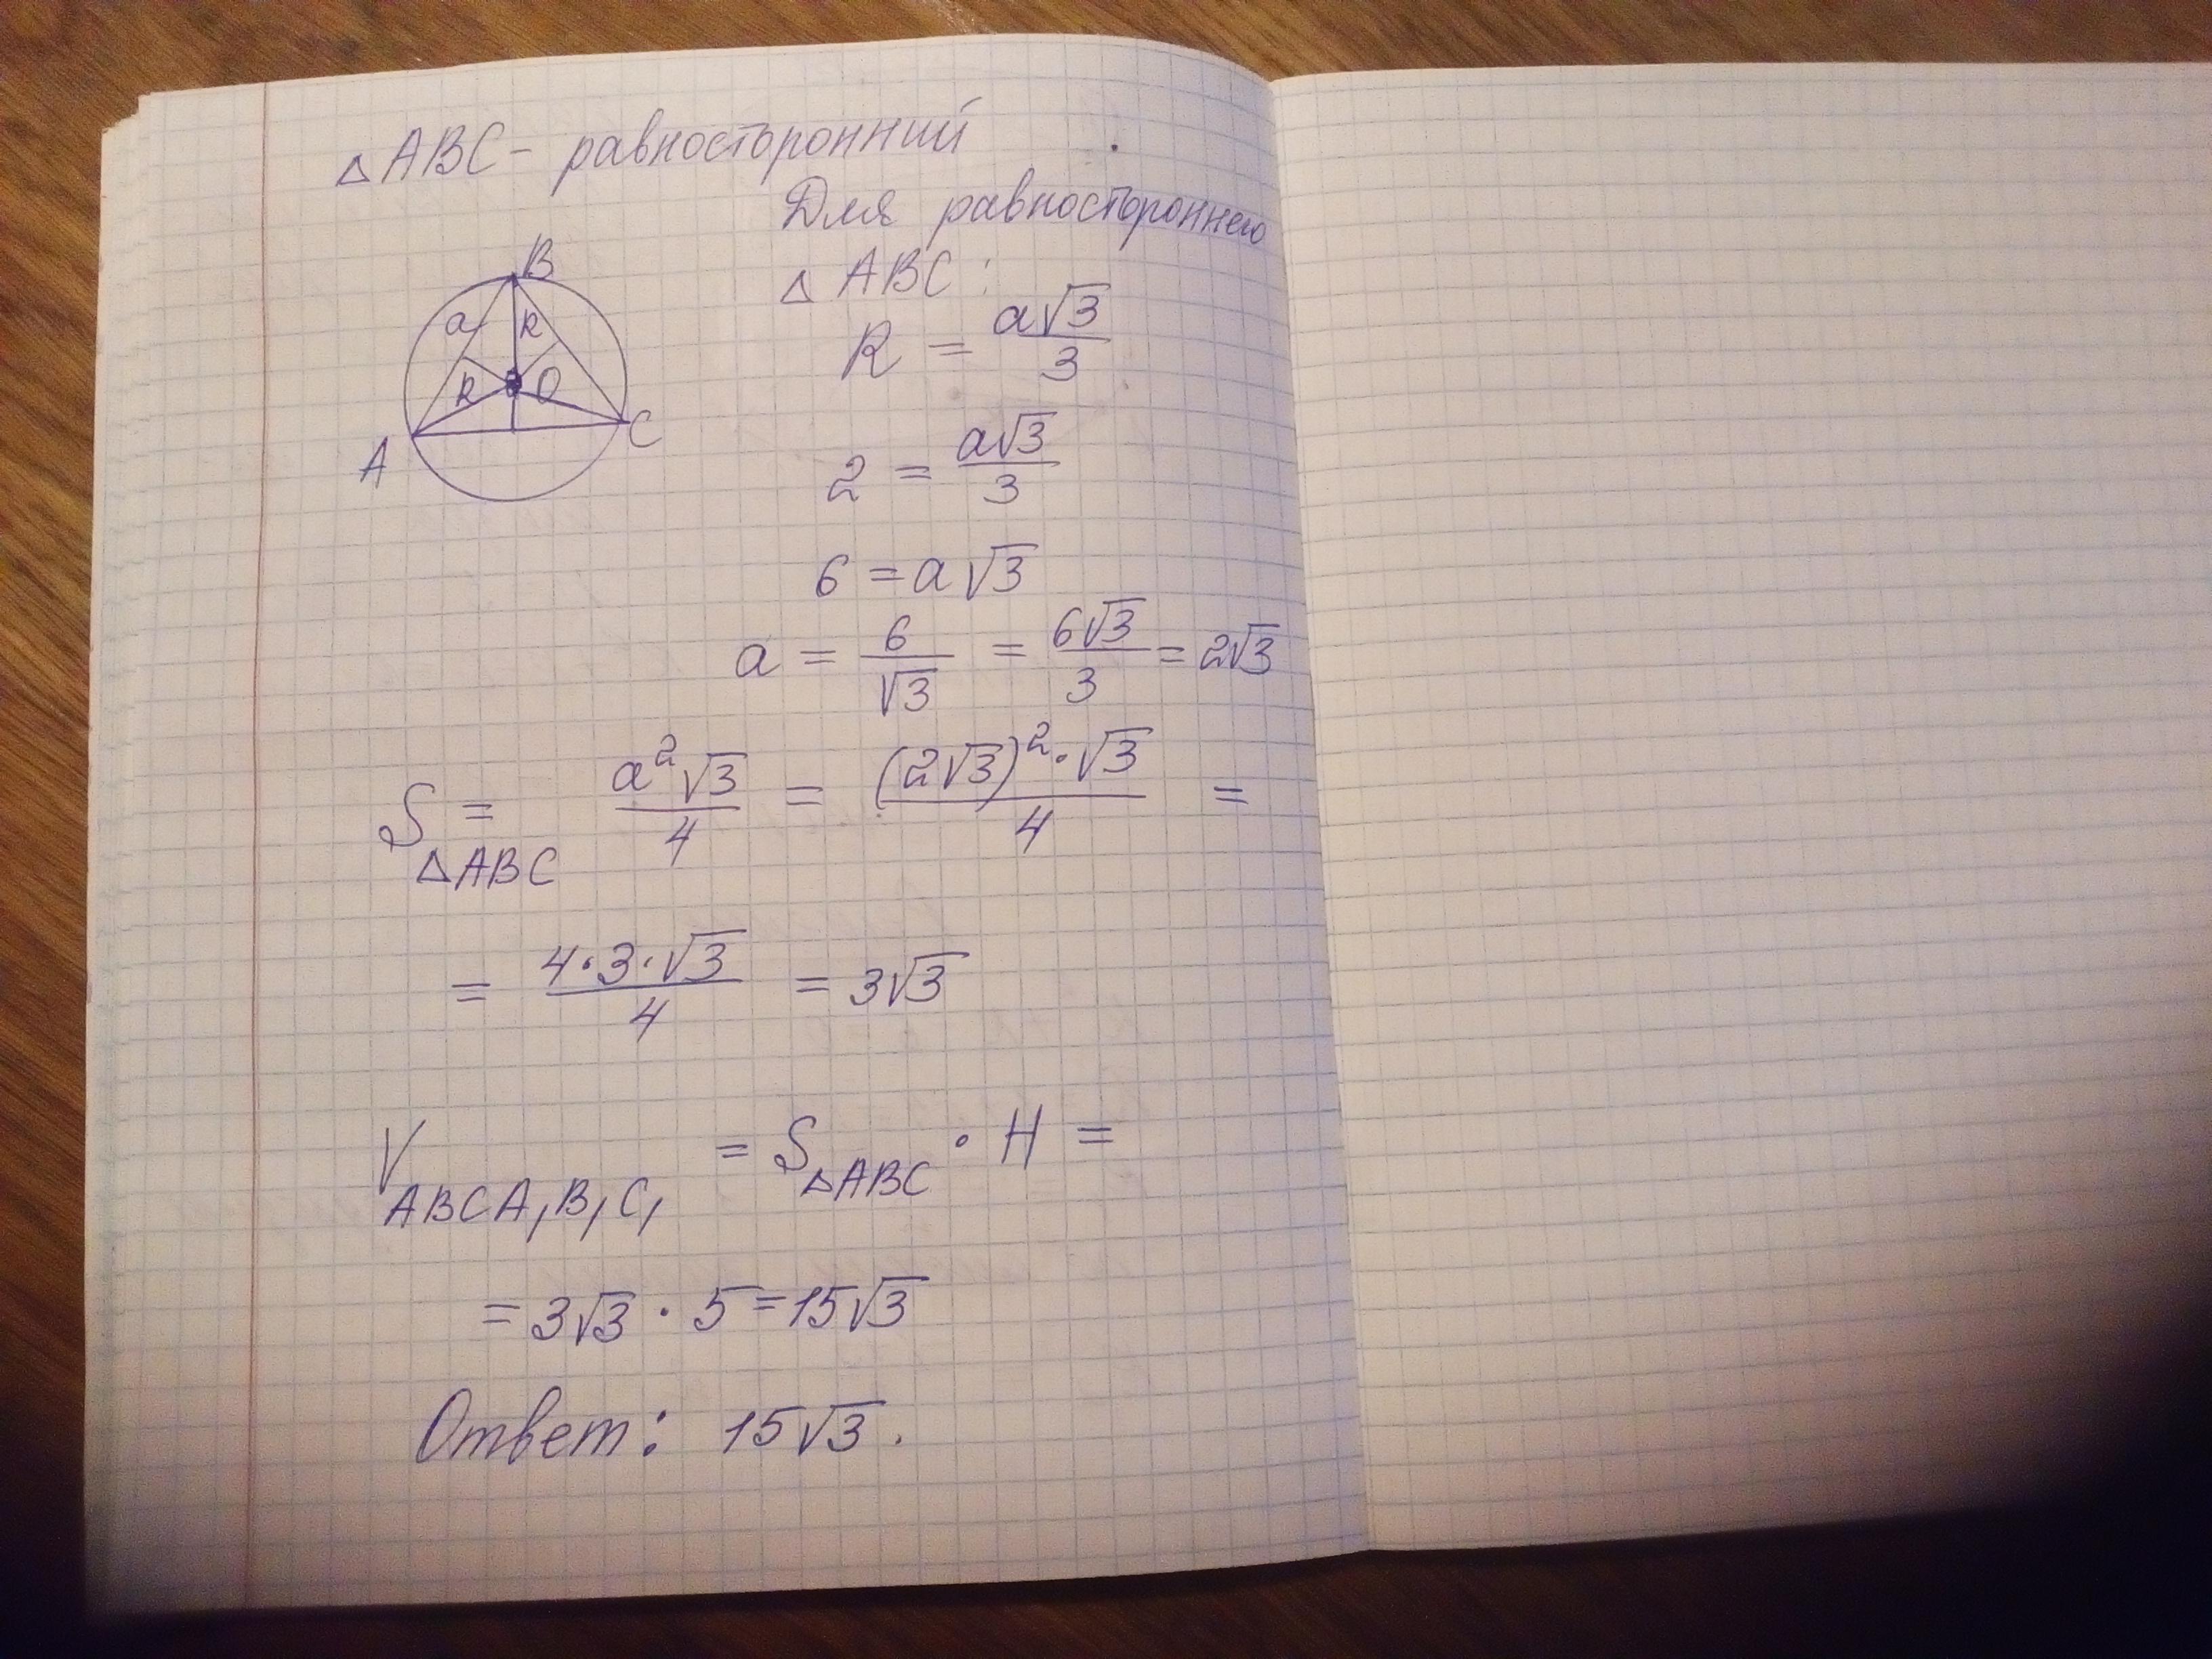 △ABC - равносторонний
Для равностороннего
△ABC:
B
a R
R O
A C
R = a√3/3
2 = a√3/3
6 = a√3
a = 6/√3 = 6√3/3 = 2√3
S△ABC = a²√3/4 = (2√3)²·√3/4 =
= 4·3·√3/4 = 3√3
V ABCA₁B₁C₁ = S△ABC · H =
= 3√3 · 5 = 15√3
Ответ: 15√3.